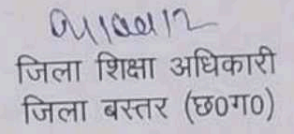 जिला शिक्षा अधिकारी
जिला बस्तर (छ0ग0)